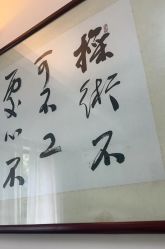 操術不
可不工
處心不